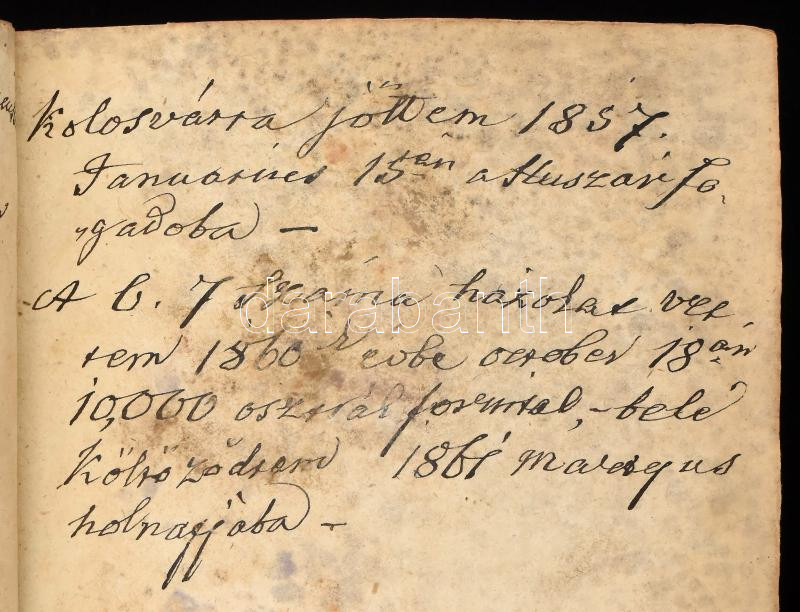 Kolosvárra jöttem 1857.
Januarius 15én a Huszár fo-
"gadoba —
A b. 7 számu házokat vet
tem 1860ik évbe october 18án
10,000 osztrák forintal, - belé
Költöződtem 1861 Martzius
holnapjába -
darabanth